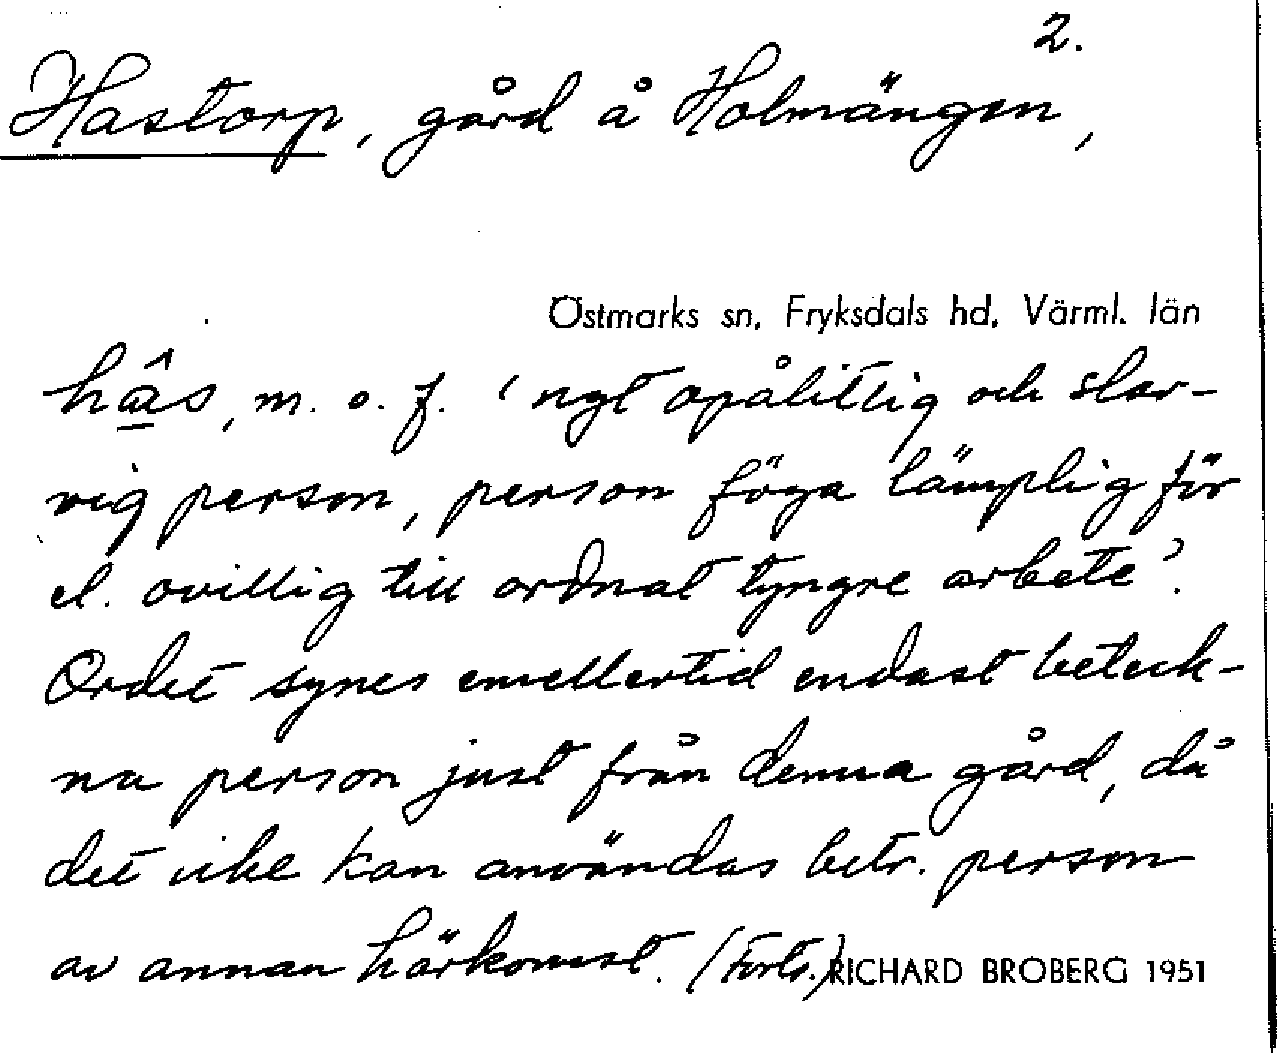 2.
Hastorp, gård å Holmängen,
Östmarks sn, Fryksdals hd, Värml. län
hâs, m. o. f. 'ngt opålitlig och slar-
vig person, person föga lämplig för
el. ovillig till ordnat tyngre arbete'.
Ordet synes emellertid endast beteck-
na person just från denna gård, då
det icke kan användas betr. person
av annan härkomst. (Forts.)
RICHARD BROBERG 1951